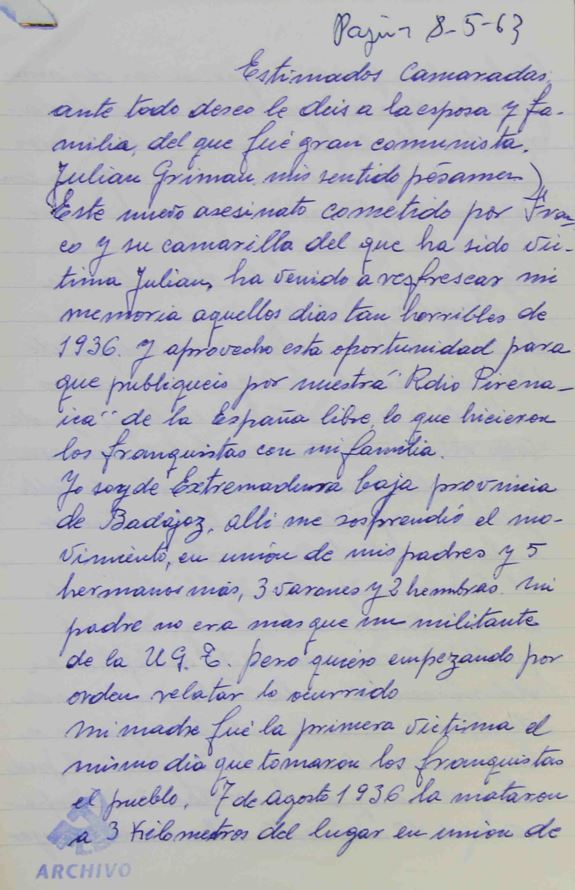 8-5-63
Estimados Camaradas,
ante todo deseo le deis a la esposa y fa-
milia, del que fué gran comunista.
Julian Grimau, mis sentido pésames)
Este nuevo asesinato cometido por Fran-
co y su camarilla del que ha sido víc-
tima Julian, ha venido a resfrescar mi
memoria aquellos dias tan horribles de
1936. y aprovecho esta oportunidad para
que publiqueis por nuestra "Rdio Pirena-
ica" de la España libre, lo que hicieron
los franquistas con mi familia.
Yo soy de Extremadura baja provincia
de Badajoz, alli me sosprendió el mo-
vimiento, en unión de mis padres y 5
hermanos más, 3 varones y 2 hembras. mi
padre no era mas que un militante
de la U.G.T. pero quiero empezando por
orden relatar lo ocurrido
mi madre fué la primera victima el
mismo dia que tomaron los franquistas
el pueblo, 7 de agosto 1936 la mataron
a 3 Kilometros del lugar en unión de
ARCHIVO